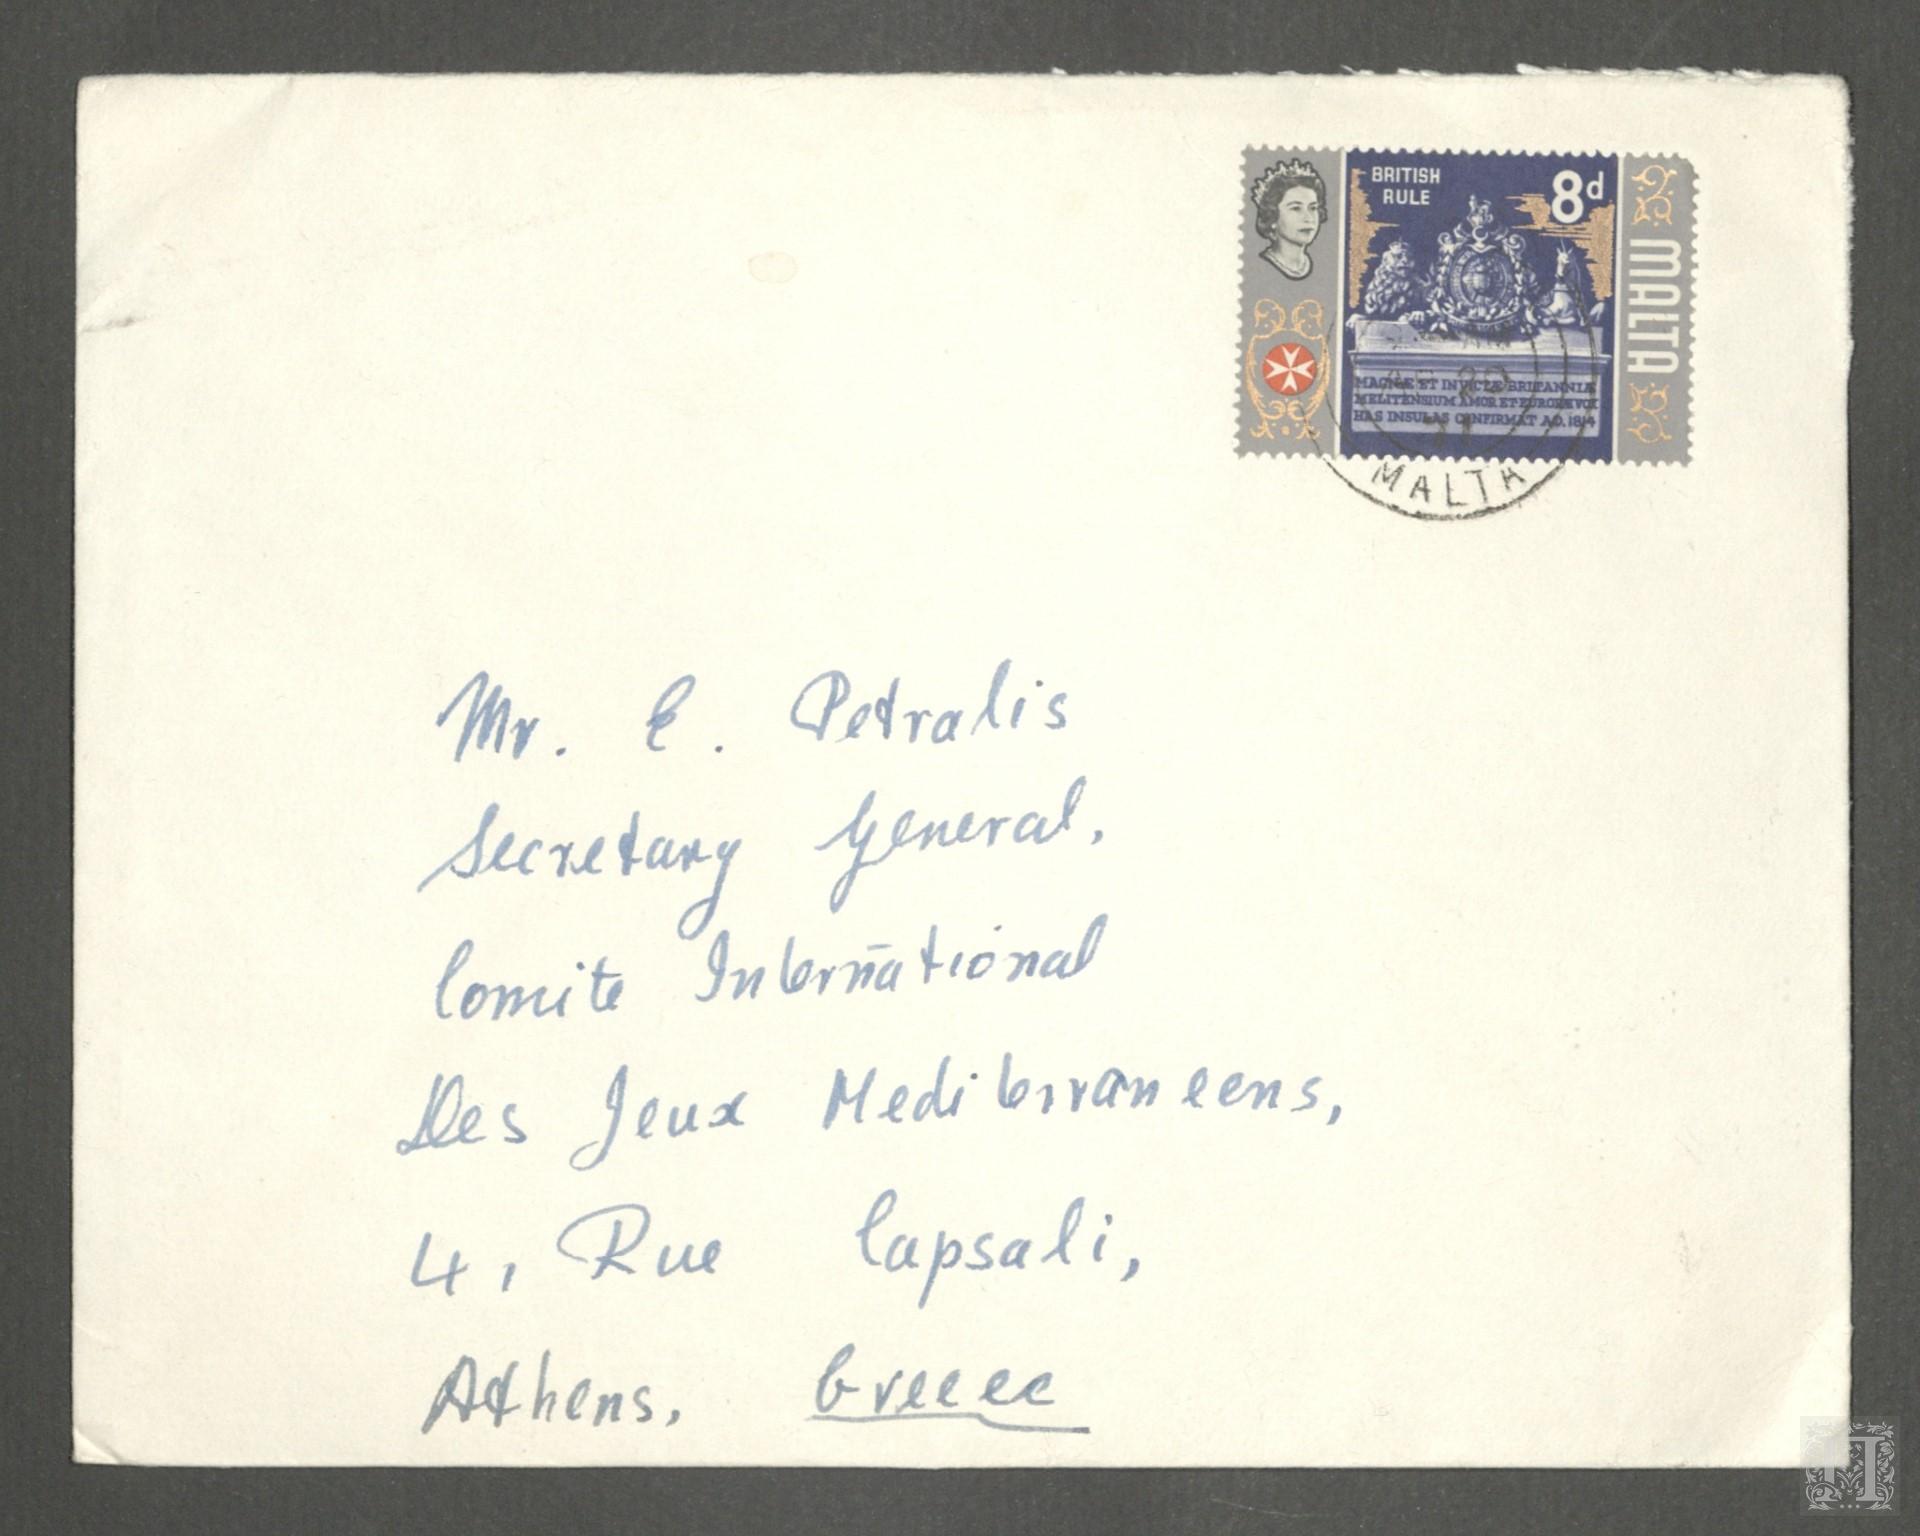 BRITISH
RULE
8d
MALTA
MAGNÆ ET INVICTÆ BRITANNIÆ
MELITENSIUM AMOR ET EUROPÆ VOX
HAS INSULAS CONFIRMAT A.D. 1814
20
71
MALTA
Mr. E. Petralis
Secretary General,
Comite International
Des Jeux Mediterraneens,
4, Rue Capsali,
Athens, Greece